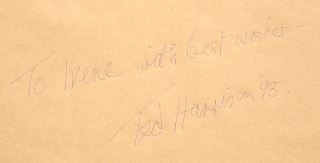 To Irene with best wishes -
Ted Harrison '95.